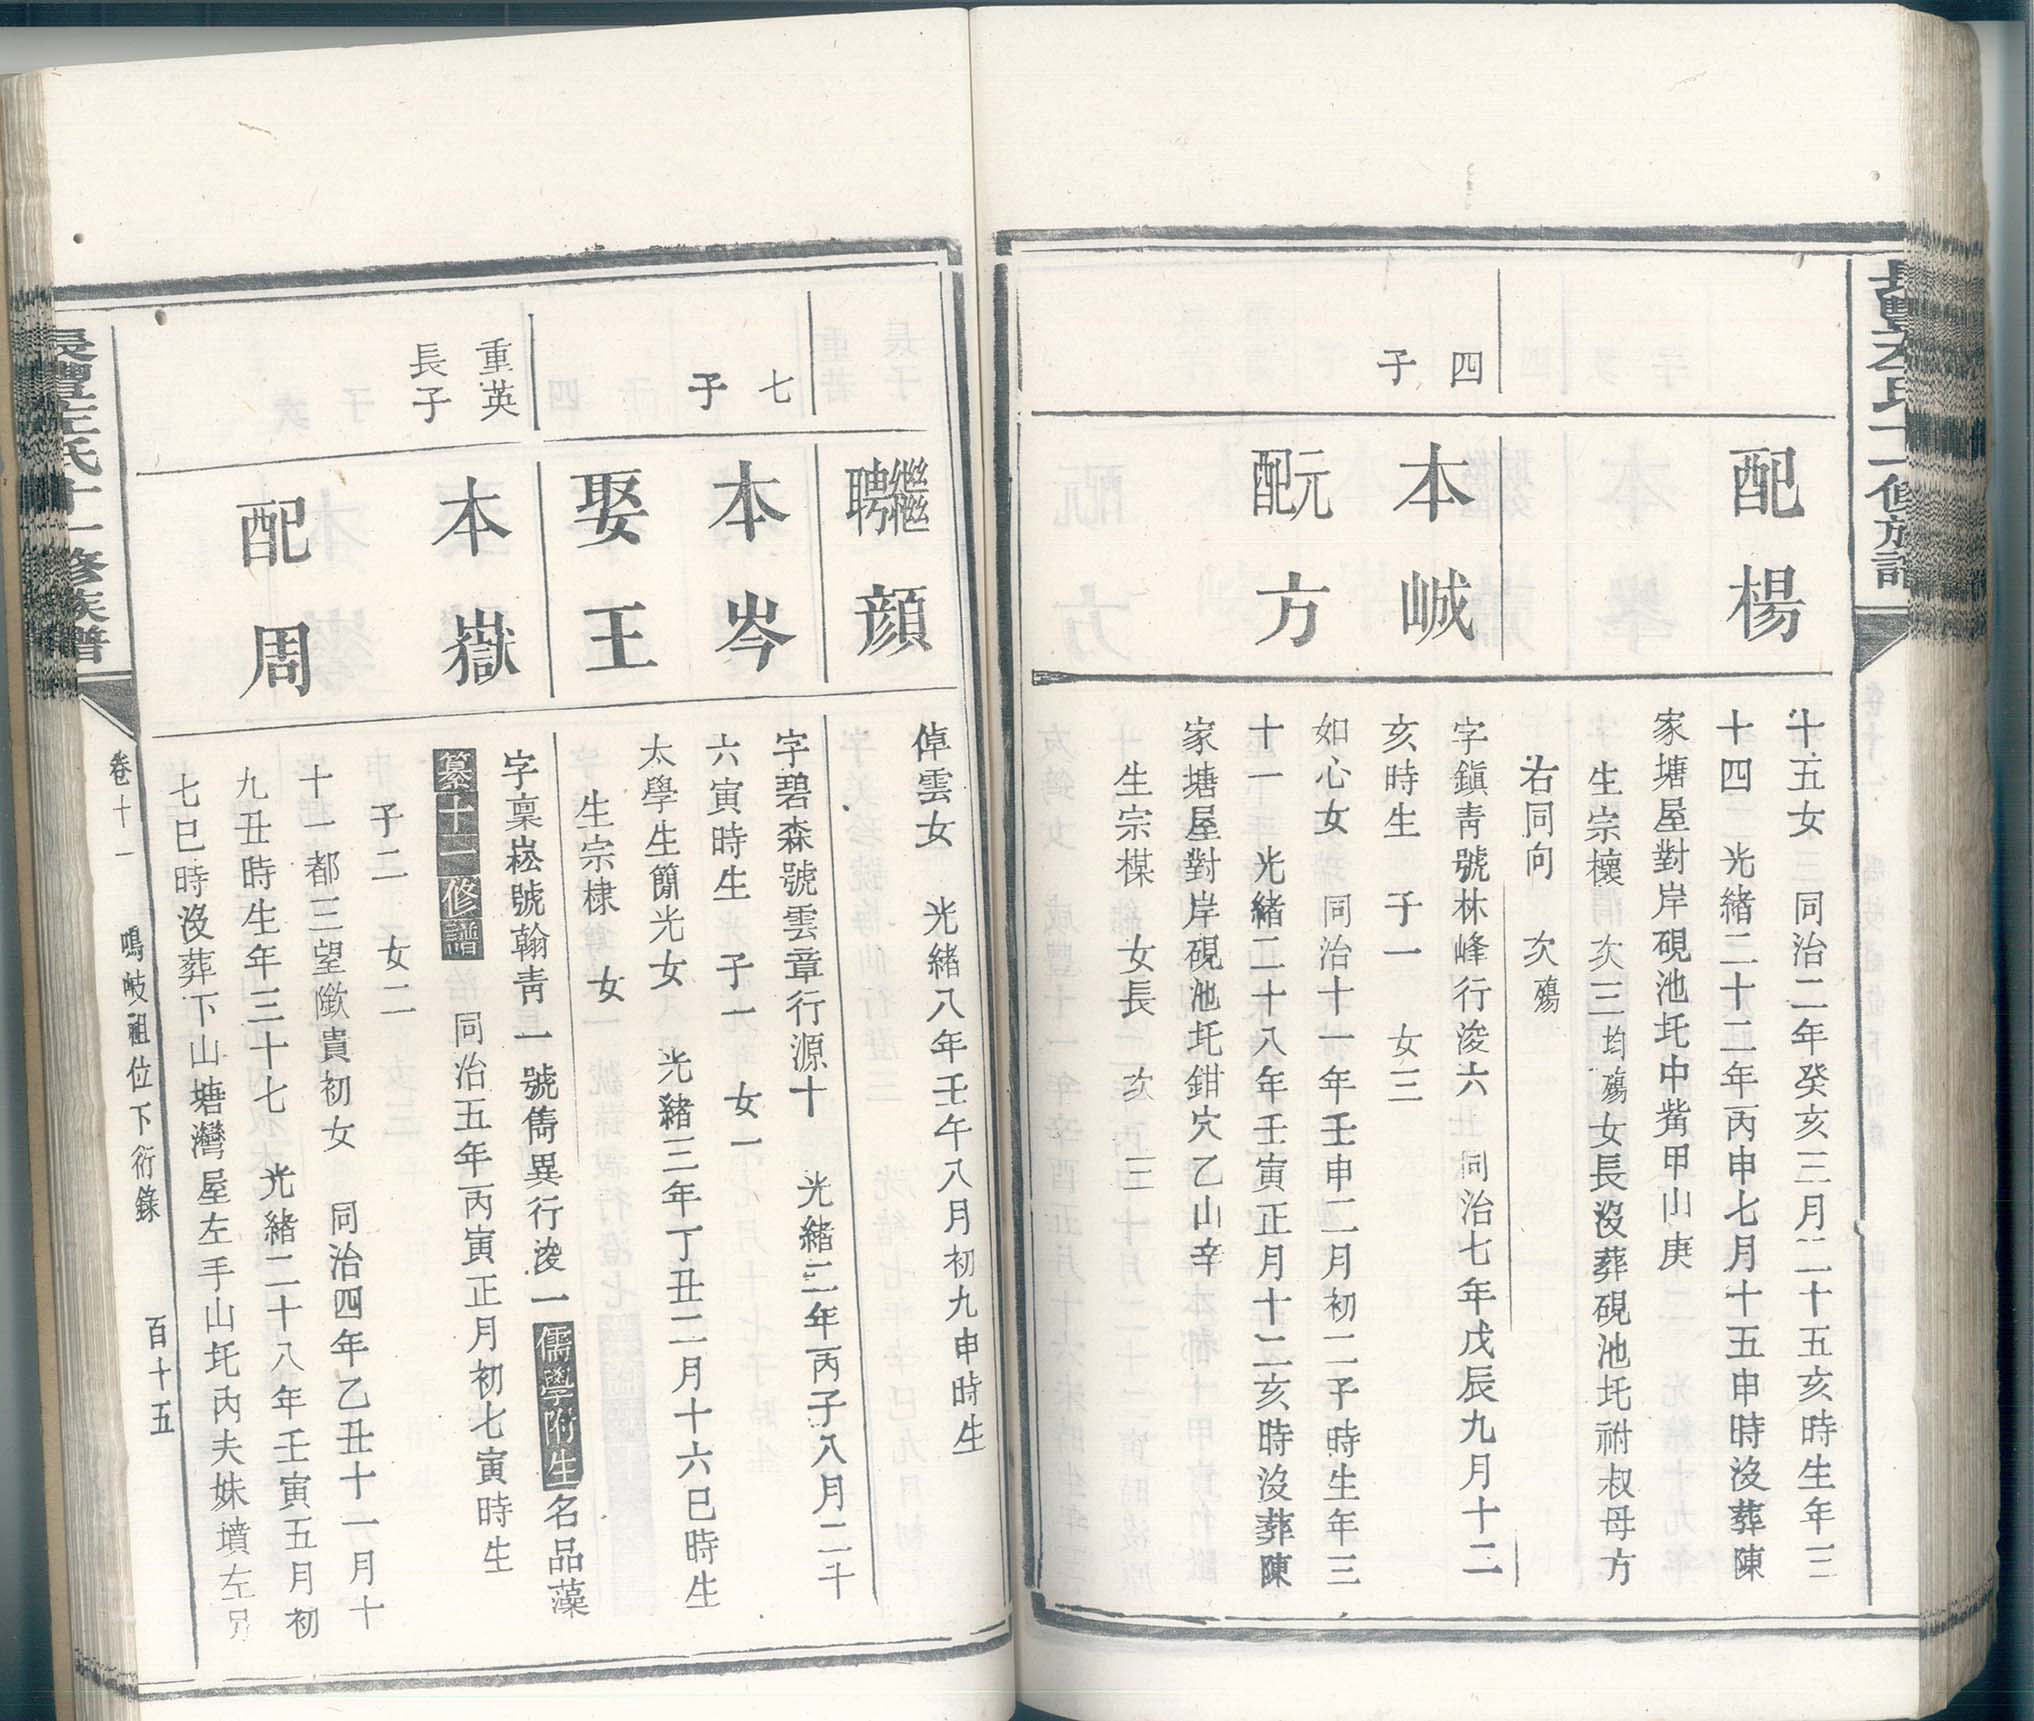 長豐左氏十一修族譜
配楊
十五女 同治二年癸亥三月二十五亥時生年三
十四 光緒二十二年丙申七月十五申時沒葬陳
家塘屋對岸硯池坉中觜甲山庚
生宗欀 次三均殤女長沒葬硯池坉祔叔母方
右同向 次殤
四
子
本峸
字鎮青號林峰行浚六 同治七年戊辰九月十二
亥時生 子一 女三
元配方
如心女 同治十一年壬申二月初二子時生年三
十一 光緒二十八年壬寅正月十二亥時沒葬陳
家塘屋對岸硯池坉鉗穴乙山辛
生宗楳 女長 次 三
繼聘顏
倬雲女 光緒八年壬午八月初九申時生
七
子
本岑
字碧森號雲章行源十 光緒二年丙子八月二十
六寅時生 子一 女一
娶王
太學生簡光女 光緒三年丁丑二月十六巳時生
生宗棣 女
重英
長子
本嶽
字稟崧號翰青一號雋異行浚一儒學附生名品藻
纂十一修譜 同治五年丙寅正月初七寅時生
子二 女二
配周
十一都三望歐貴初女 同治四年乙丑十一月十
九丑時生年三十七 光緒二十八年壬寅五月初
七巳時沒葬下山塘灣屋左手山坉內夫妹墳左另
長豐左氏十一修族譜
卷十一 鳴岐祖位下衍錄 百十五